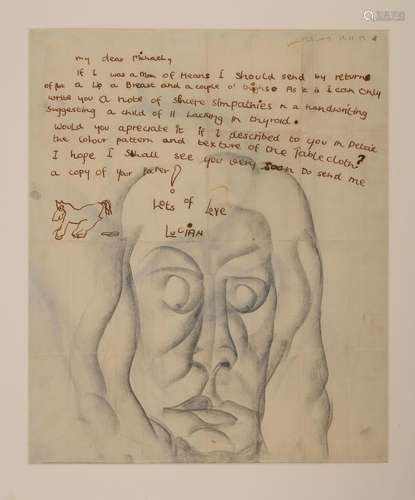 my dear Michael,
If I was a Man of Means I should send by return
of post a Lip a Breast and a couple o' Thighs. As it is I can only
write you a note of sincere simpathies in a handwriting
suggesting a child of 11 Lacking in thyroid.
Would you apreciate it if I described to you in Detail
the colour pattern and texture of the Table cloth?
I hope I shall see you very soon Do send me
a copy of your Poster!
Lots of Love
LUCIAN